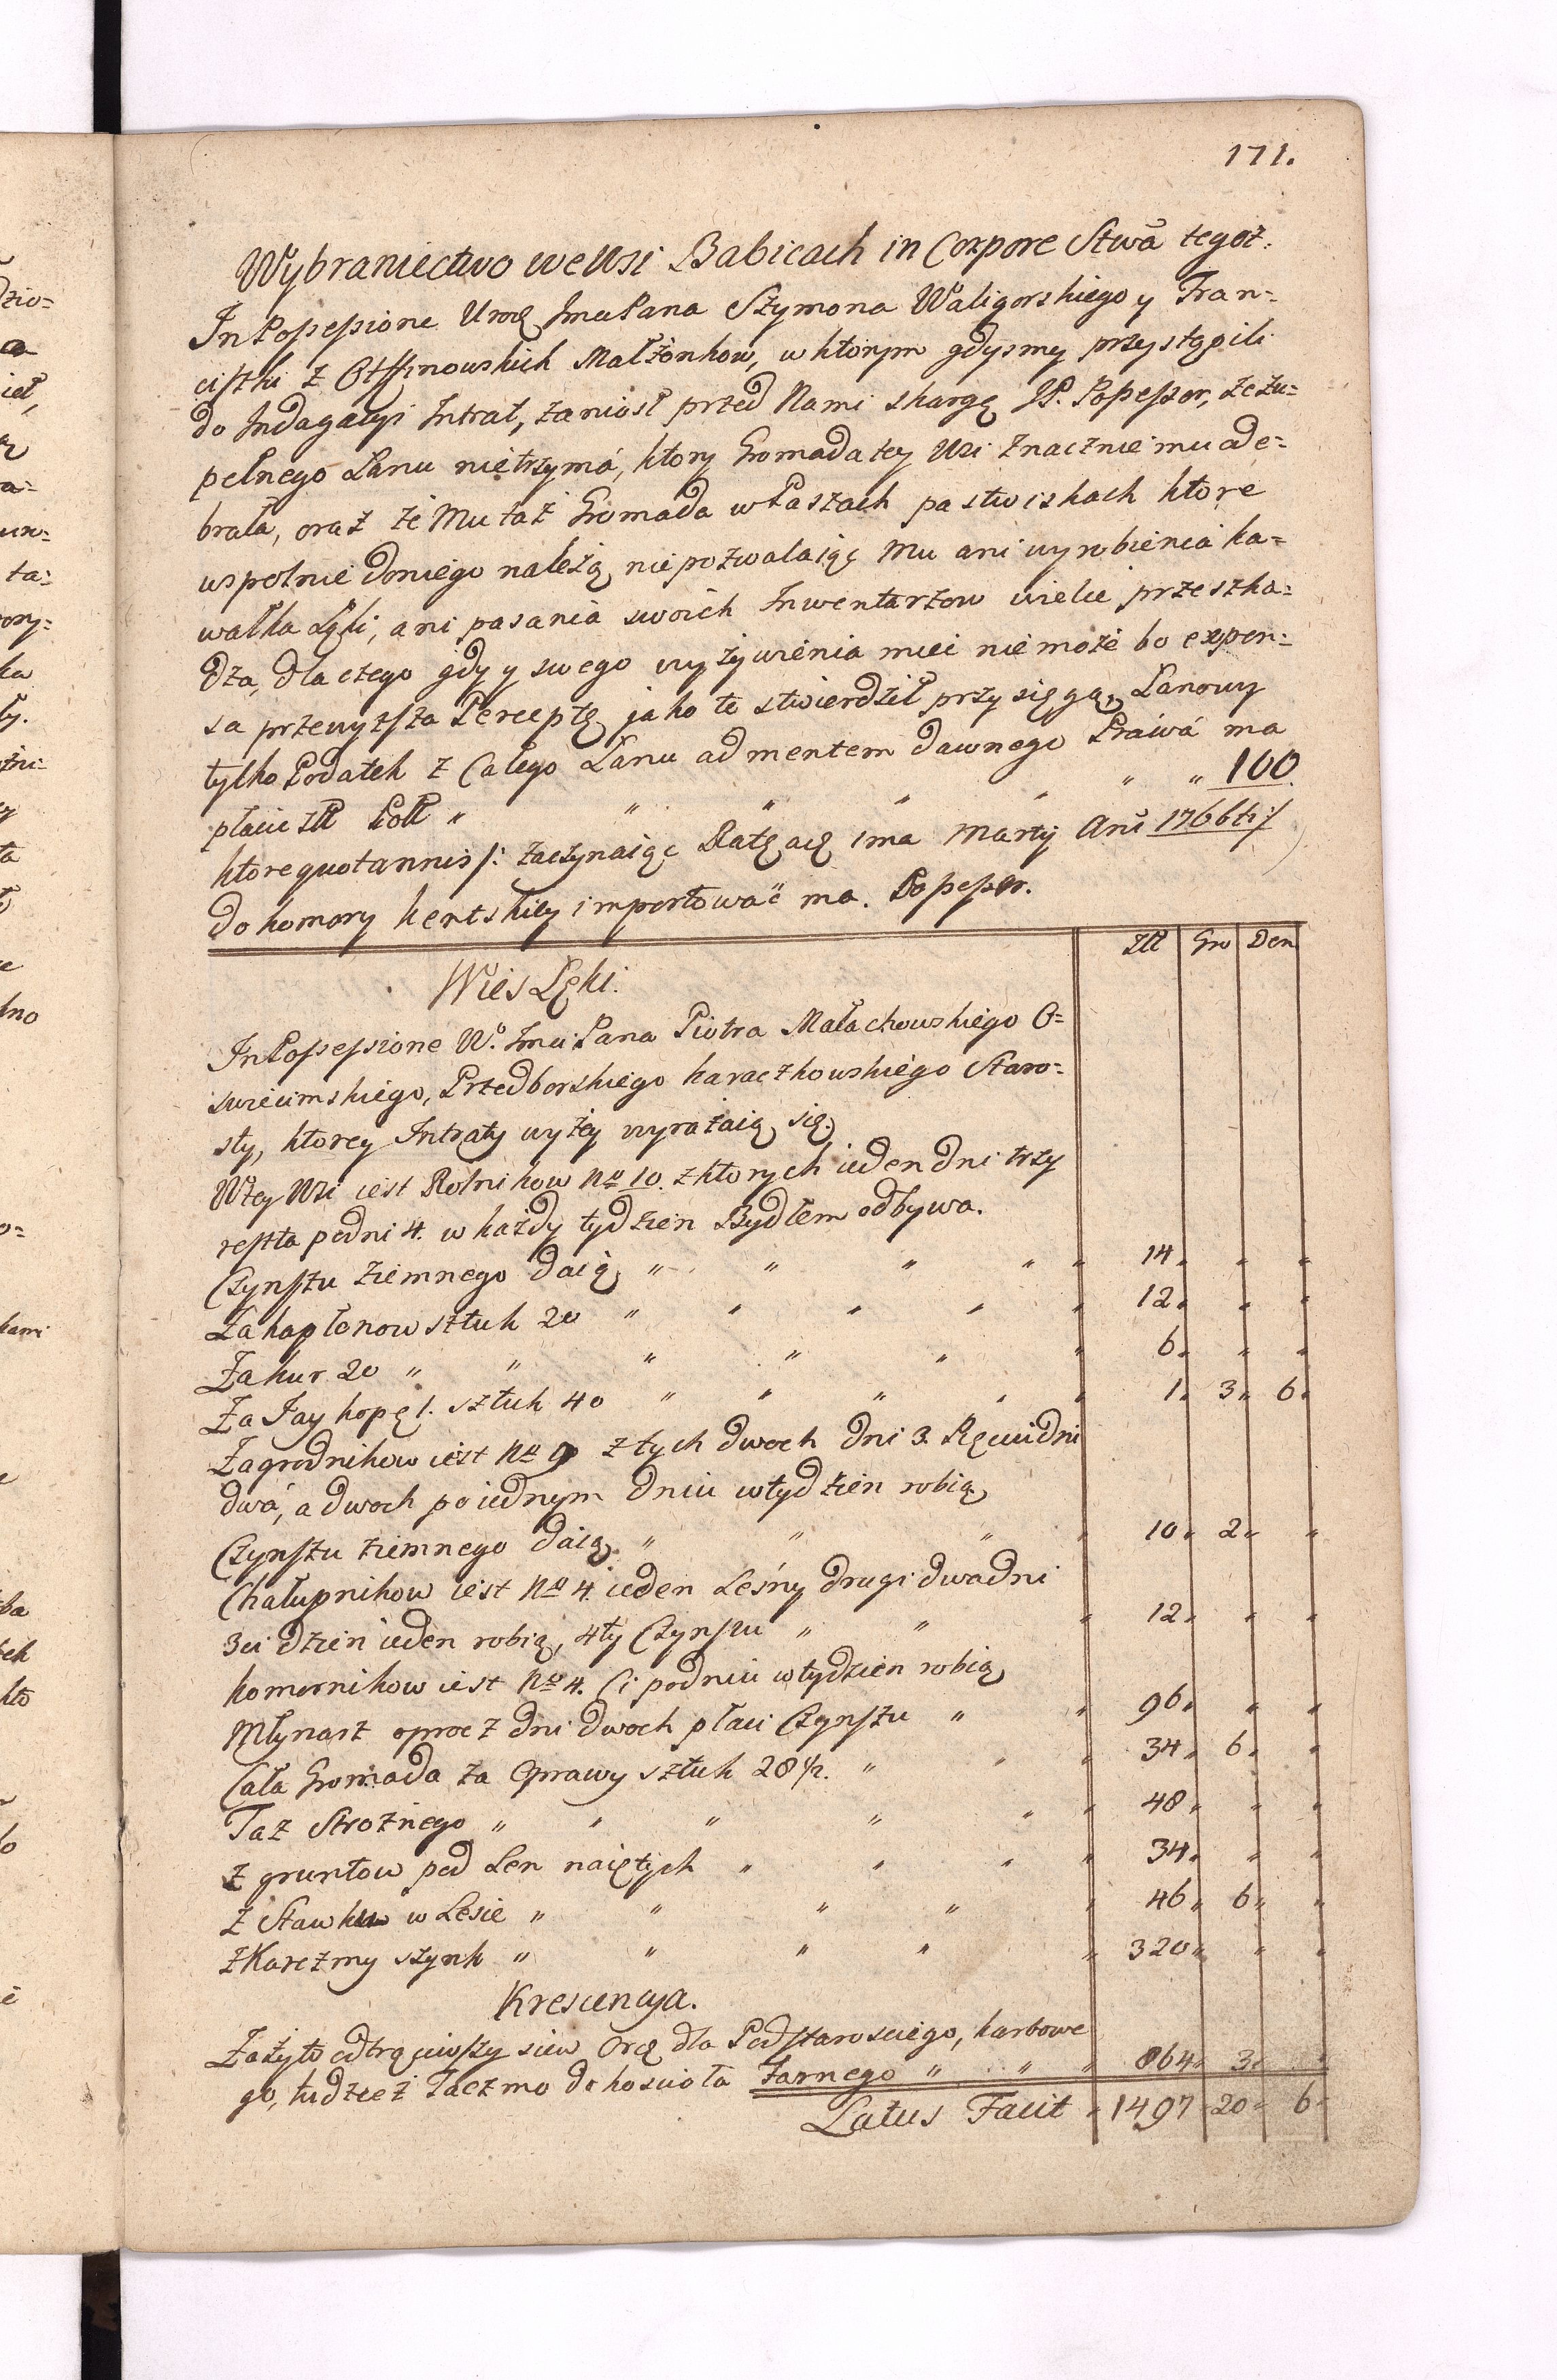 171.
Wybraniectwo we Wsi Babicach in Corpore Stwa tegoż.
In Possessione Urod Jmci Pana Szymona Waligorskiego y Fran-
ciszki z Otffinowskich Małżonkow, w ktorym gdysmy przystąpili
do Indagacyi Intrat, zaniosł przed Nami skargę JP. Possessor, że zu-
pełnego Łanu nietrzymá, ktory Gromada tey Wsi znacznie mu ode-
brała, oraz że Mu taż Gromada w Paszach pastwiskach ktore
wspolnie doniego należą niepozwalaiąc Mu ani wyrobienia ka-
wałka Łąki, ani pasania swoich Inwentarzow wielce przeszka-
dza, dla czego gdy y swego wyżywienia mieć niemoże bo expen-
sa przewyższa Perceptę jako to stwierdził przysięgą, Łanowy
tylko Podatek z Całego Łanu ad mentem dawnego Prawá ma
płacić Złł Poll " " " " " " " 100
ktore quotannis /: zaczynaiąc Ratę a ima Martÿ Anī 1766ti :/
do komory kentskiey importować ma. Possessor.
Złł Gro Den
Wieś Łęki.
In Possessione W.º Jmci Pana Piotra Małachowskiego O-
swiecimskiego, Przedborskiego karaczkowskiego Staro-
sty, ktorey Intraty wyżey wyrażaią się.
W tey Wsi iest Rolnikow No 10. z ktorych ieden dni trzy
reszta po dni 4. w każdy tydzien Bydłem odbywa.
Czynszu Ziemnego daią " " " " " 14 " "
Za kapłonow sztuk 20 " " " " " 12 " "
Za kur 20 " " " " " " 6 " "
Za Jay kopę 1. sztuk 40 " " " " " 1 3 6
Zagrodnikow iest No 9 z tych dwoch dni 3. Pięciu dni
dwá, a dwoch po iednym dniu w tydzien robią
Czynszu ziemnego daią " " " " 10 2 "
Chałupnikow iest No 4. ieden Leśny drugi dwa dni
3ci dzień ieden robią, 4ty Czynszu " " " 12 " "
komornikow iest No 4. Ci po dniu w tydzien robią
Młynarz oprocz dni dwoch płaci Czynszu " " 96 " "
Cała Gromada za Oprawy sztuk 28 1/2. " " " 34 6 "
Taż Strożnego " " " " " " 48 " "
Z gruntow pod Len naiętych " " " " 34 " "
Z Stawku w Lesie " " " " " 46 6 "
z Karczmy szynk " " " " " 320 " "
Krescencya.
Za żyto odtrąciwszy siew Ord dla Podstarosciego, karbowe
go, tudzież Taczmo do kościoła Farnego " " " 864 3 "
Latus Facit " 1497 20 6